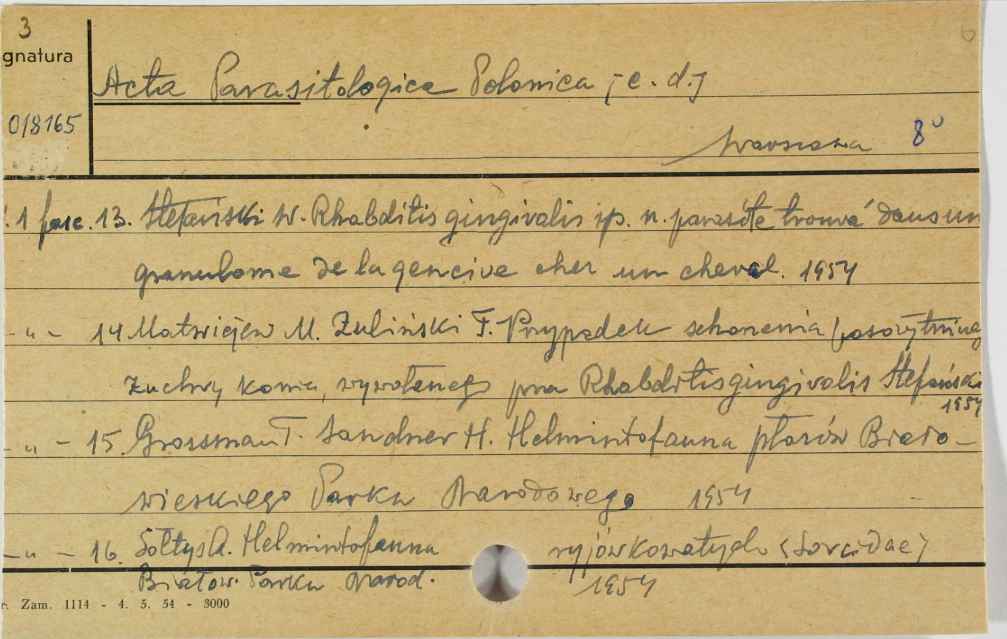 3
gnatura
Acta Parasitologica Polonica /c.d./
0/8165
Warszawa 8°
1 fasc. 13. Stefański W. Rhabditis gingivalis sp. n. parasite trouvé dans un
granulome de la gencive chez un cheval. 1954
- " - 14 Matwiejew M. Zuliński F. Przypadek schorzenia pasożytniczeg
żuchwy konia, wywołanego prza Rhabditis gingivalis Stefański
1954
- " - 15. Grossman T. Sandner H. Helmintofauna ptaków Biało-
wieskiego Parku Narodowego 1954
- " - 16. Sołtys A. Helmintofauna ryjówkowatych (Soricidae)
Białow. Parku Narod. 1954
r. Zam. 1114 - 4. 5. 54 - 3000